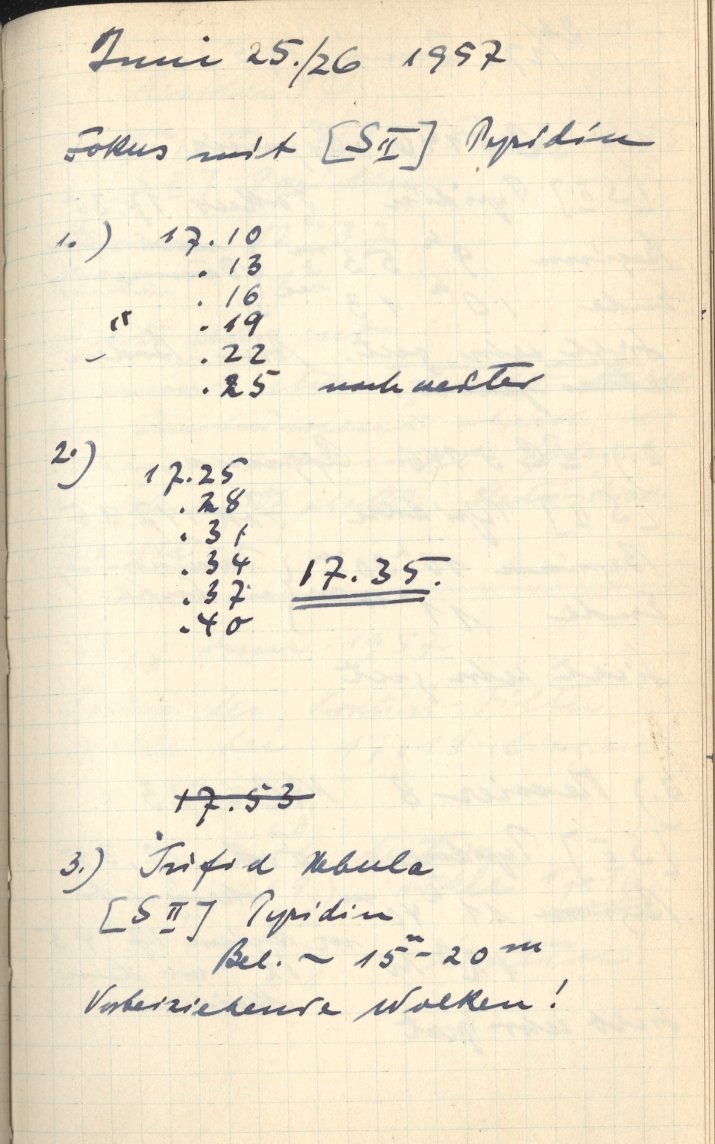 Juni 25./26 1957
Fokus mit [SII] Pyridin
1.) 17.10
.13
.16
" .19
.22
.25 noch weiter
2.) 17.25
.28
.31
.34
.37
.40
17.35.
17.53
3.) Trifid Nebula
[SII] Pyridin
Bel. ~ 15m-20m
Vorbeiziehende Wolken!